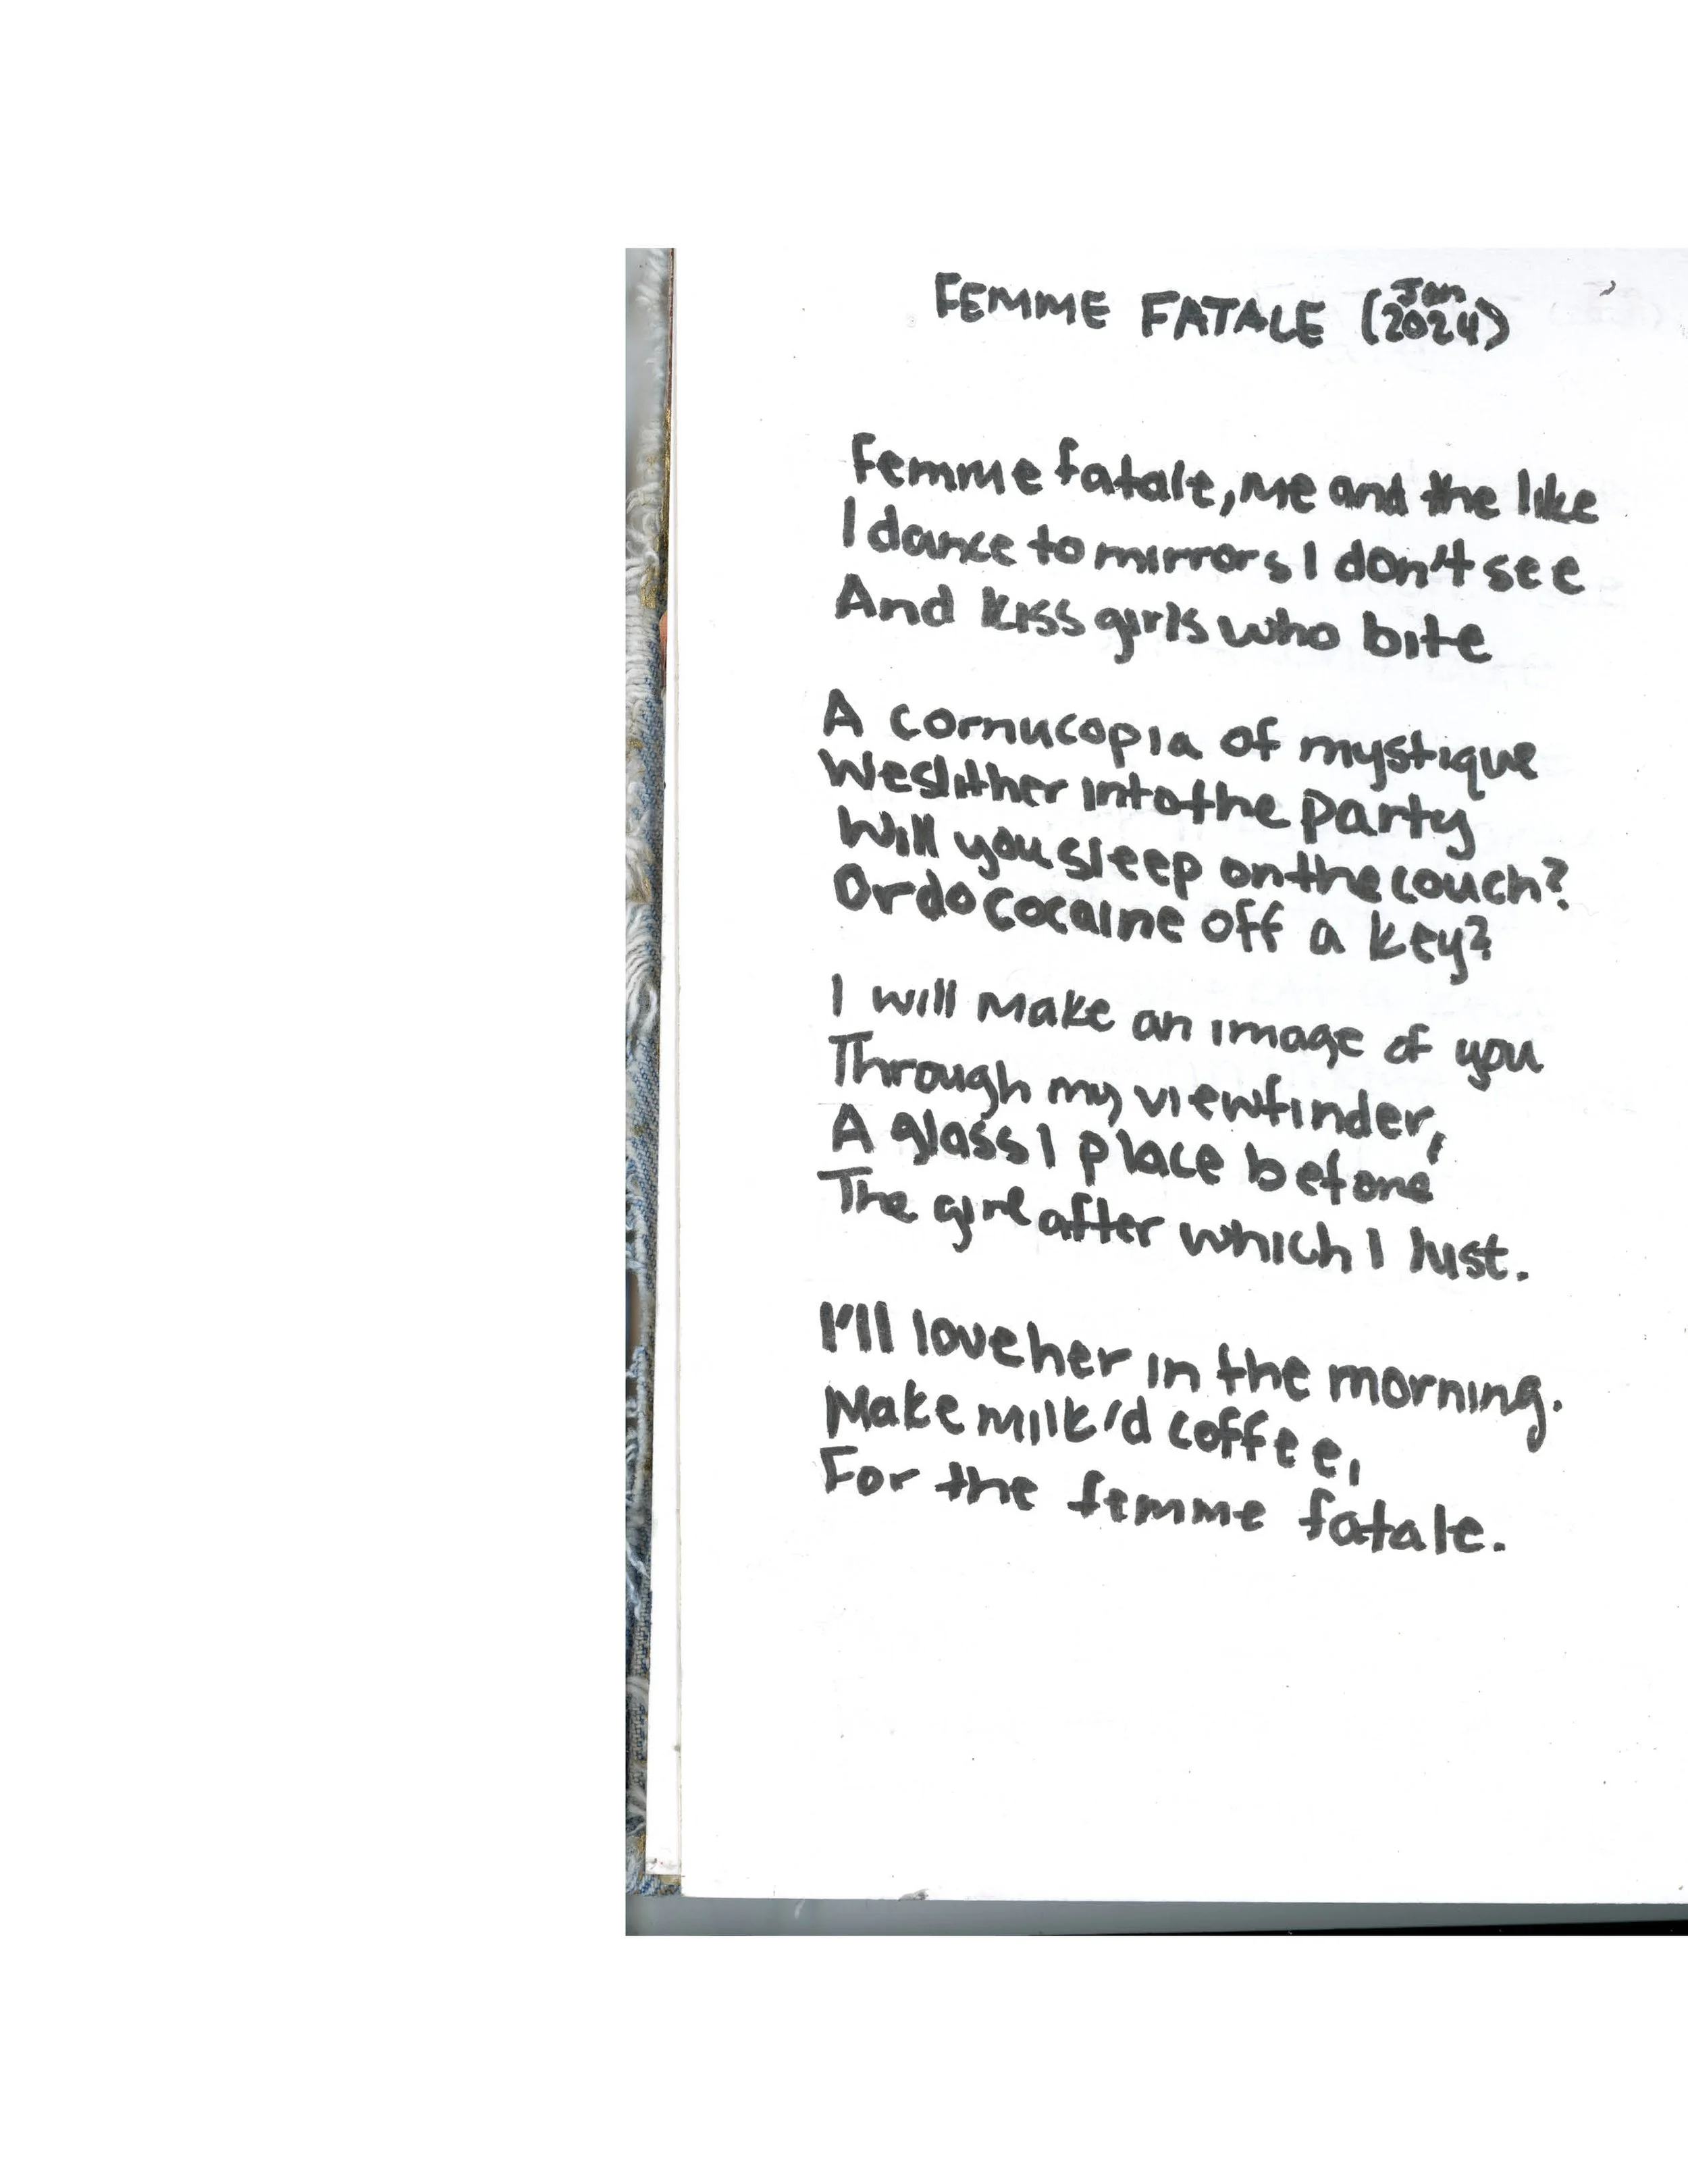 FEMME FATALE (Jan 2024)
Femme fatale, me and the like
I dance to mirrors I don't see
And kiss girls who bite
A cornucopia of mystique
We slither into the party
Will you sleep on the couch?
Or do cocaine off a key?
I will make an image of you
Through my viewfinder,
A glass I place before
The girl after which I lust.
I'll love her in the morning.
Make milk'd coffee,
For the femme fatale.